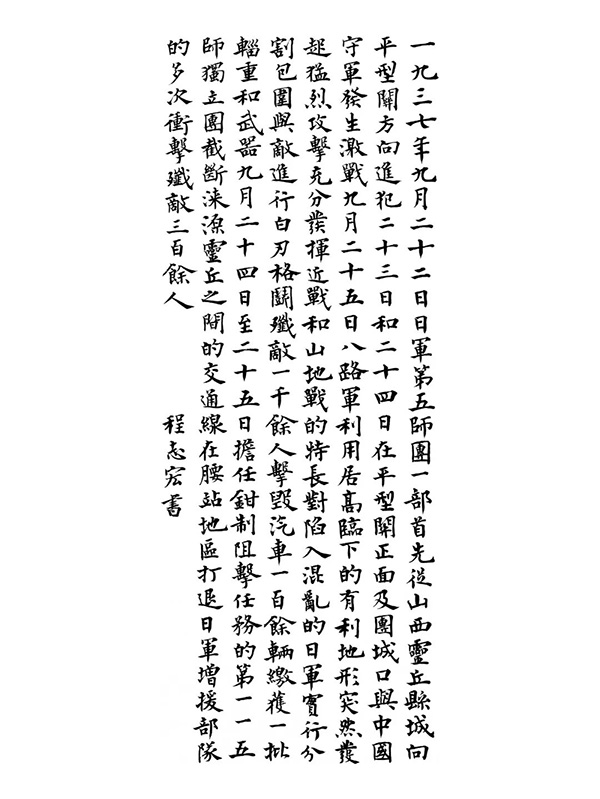 一九三七年九月二十二日日軍第五師團一部首先從山西靈丘縣城向
平型關方向進犯二十三日和二十四日在平型關正面及團城口與中國
守軍發生激戰九月二十五日八路軍利用居高臨下的有利地形突然發
起猛烈攻擊充分發揮近戰和山地戰的特長對陷入混亂的日軍實行分
割包圍與敵進行白刃格鬪殲敵一千餘人擊毀汽車一百餘輛繳獲一批
輜重和武器九月二十四日至二十五日擔任鉗制阻擊任務的第一一五
師獨立團截斷淶源靈丘之間的交通線在腰站地區打退日軍增援部隊
的多次衝擊殲敵三百餘人
程志宏書